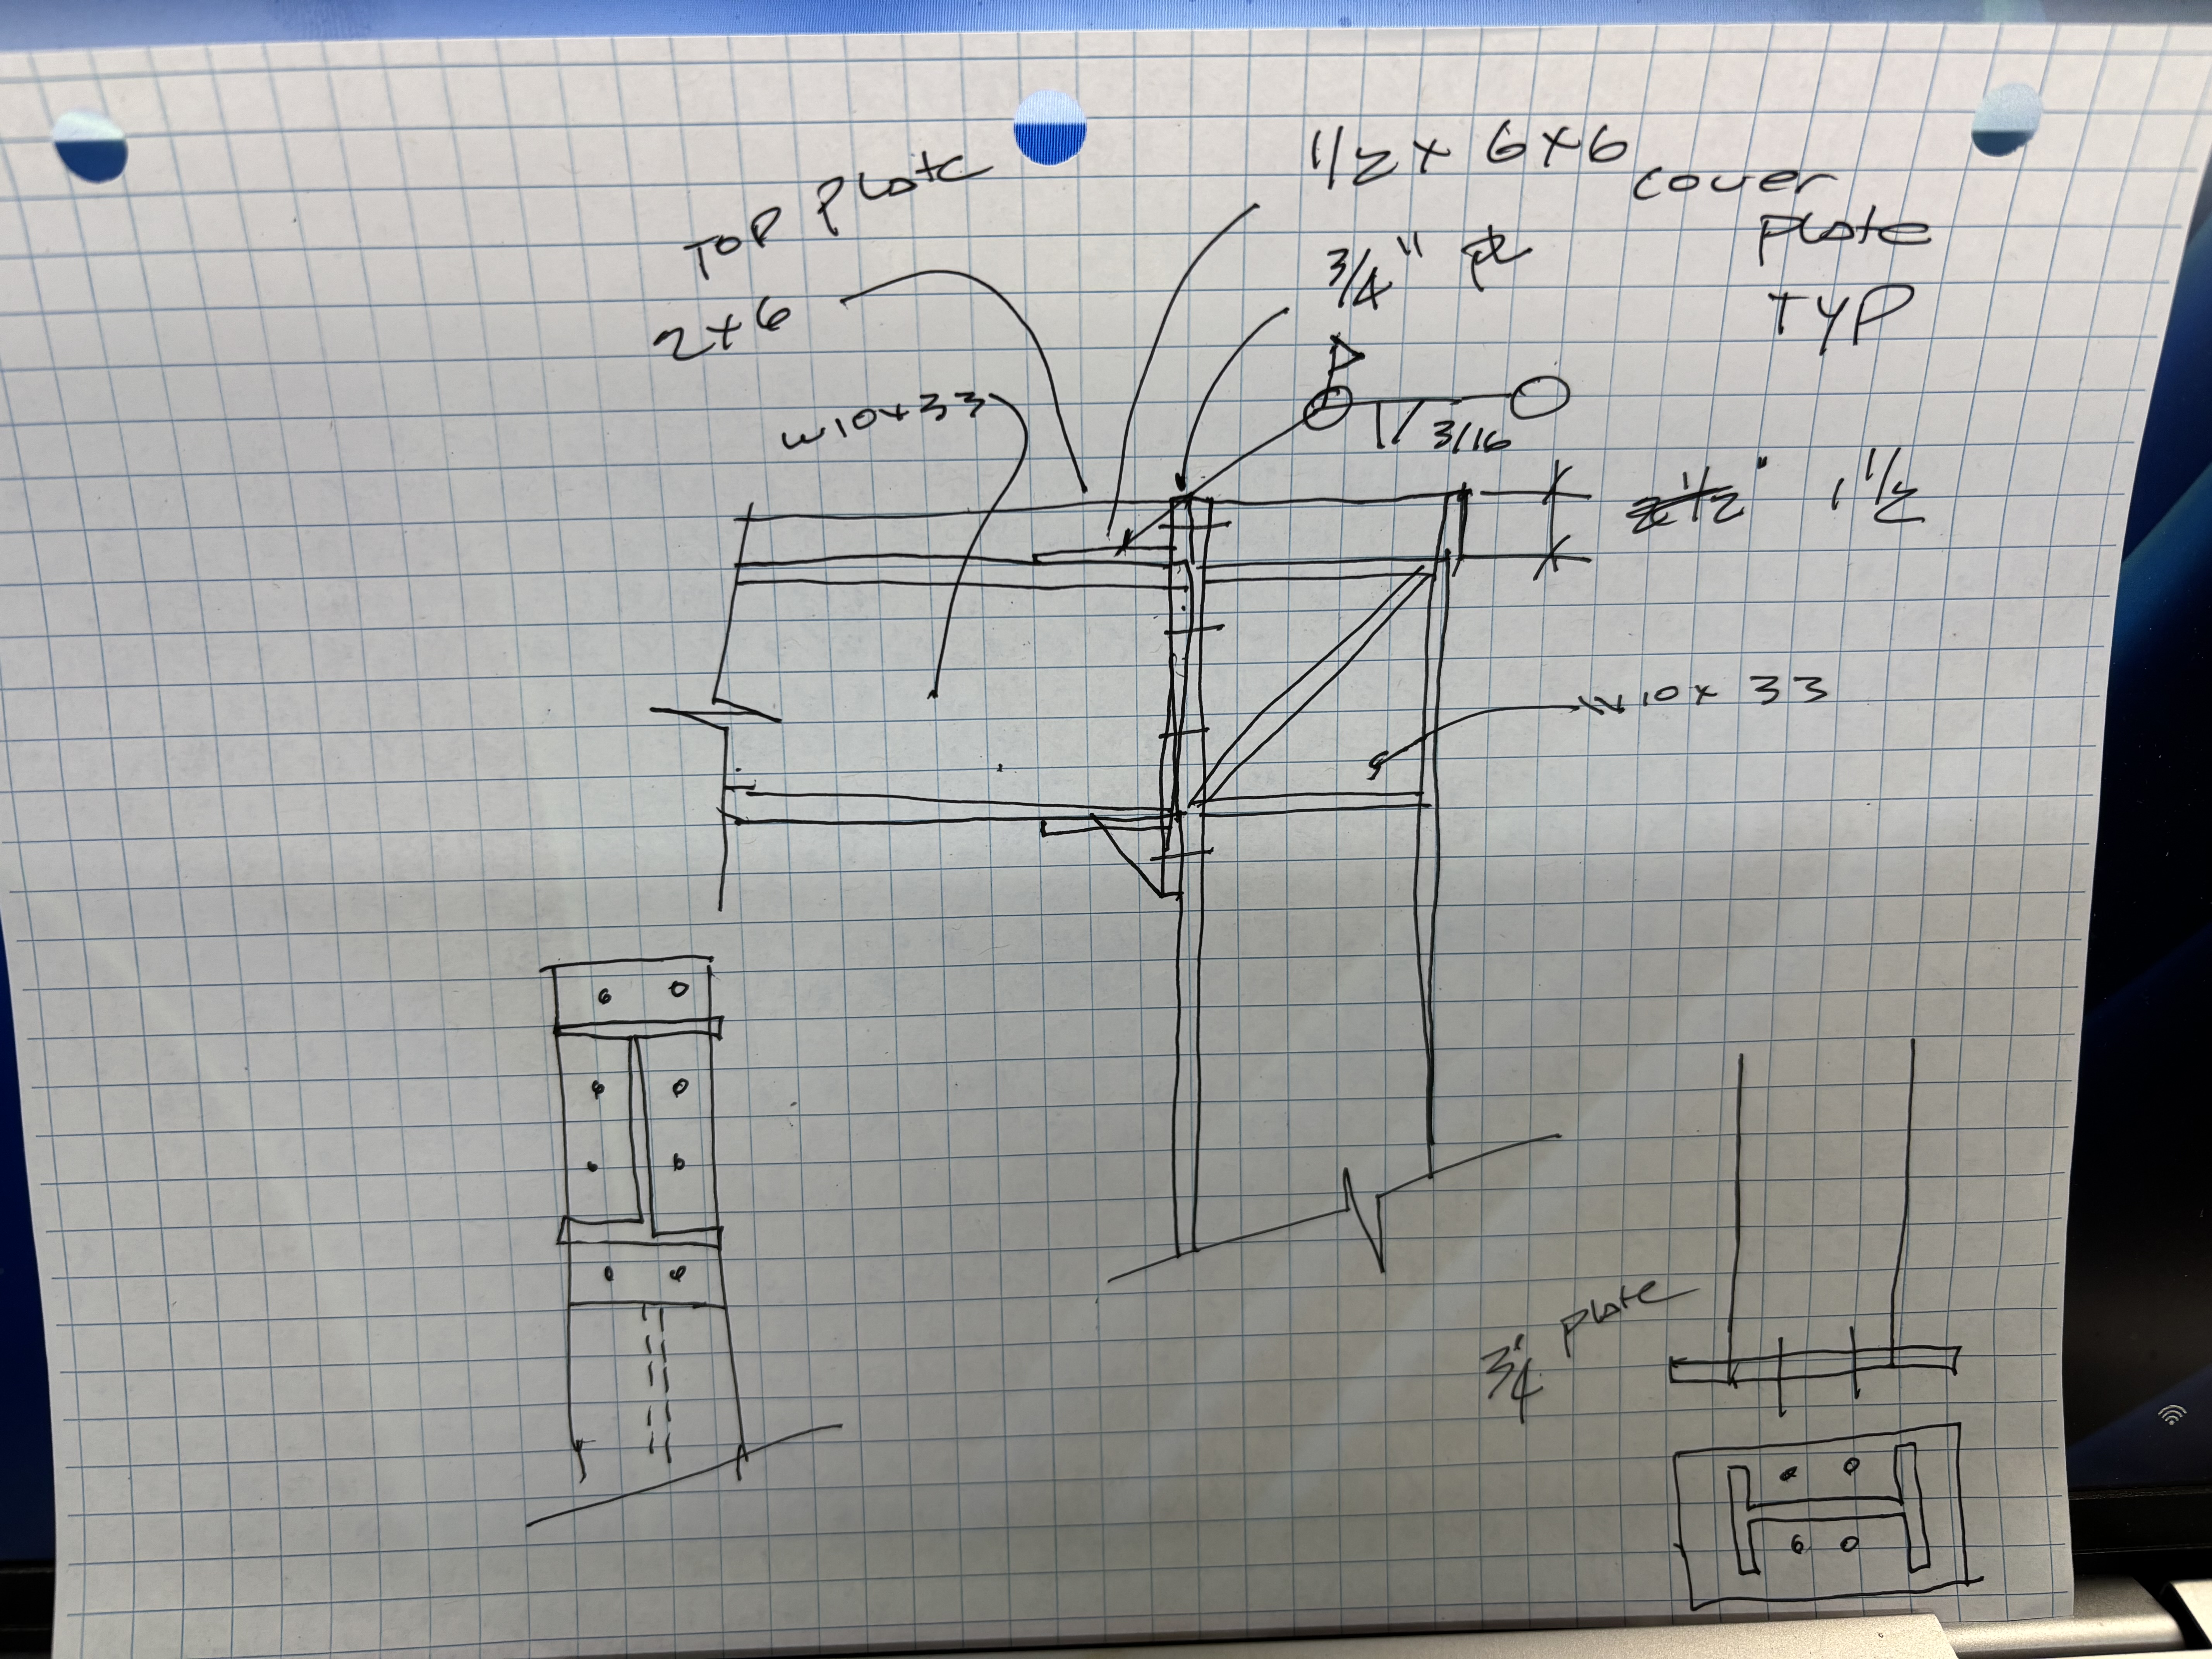 TOP Plate
2x6
1/2 x 6x6
cover
plate
TYP
3/4" pl
W10x33
3/16
1 1/2
W10x33
3/4" plate